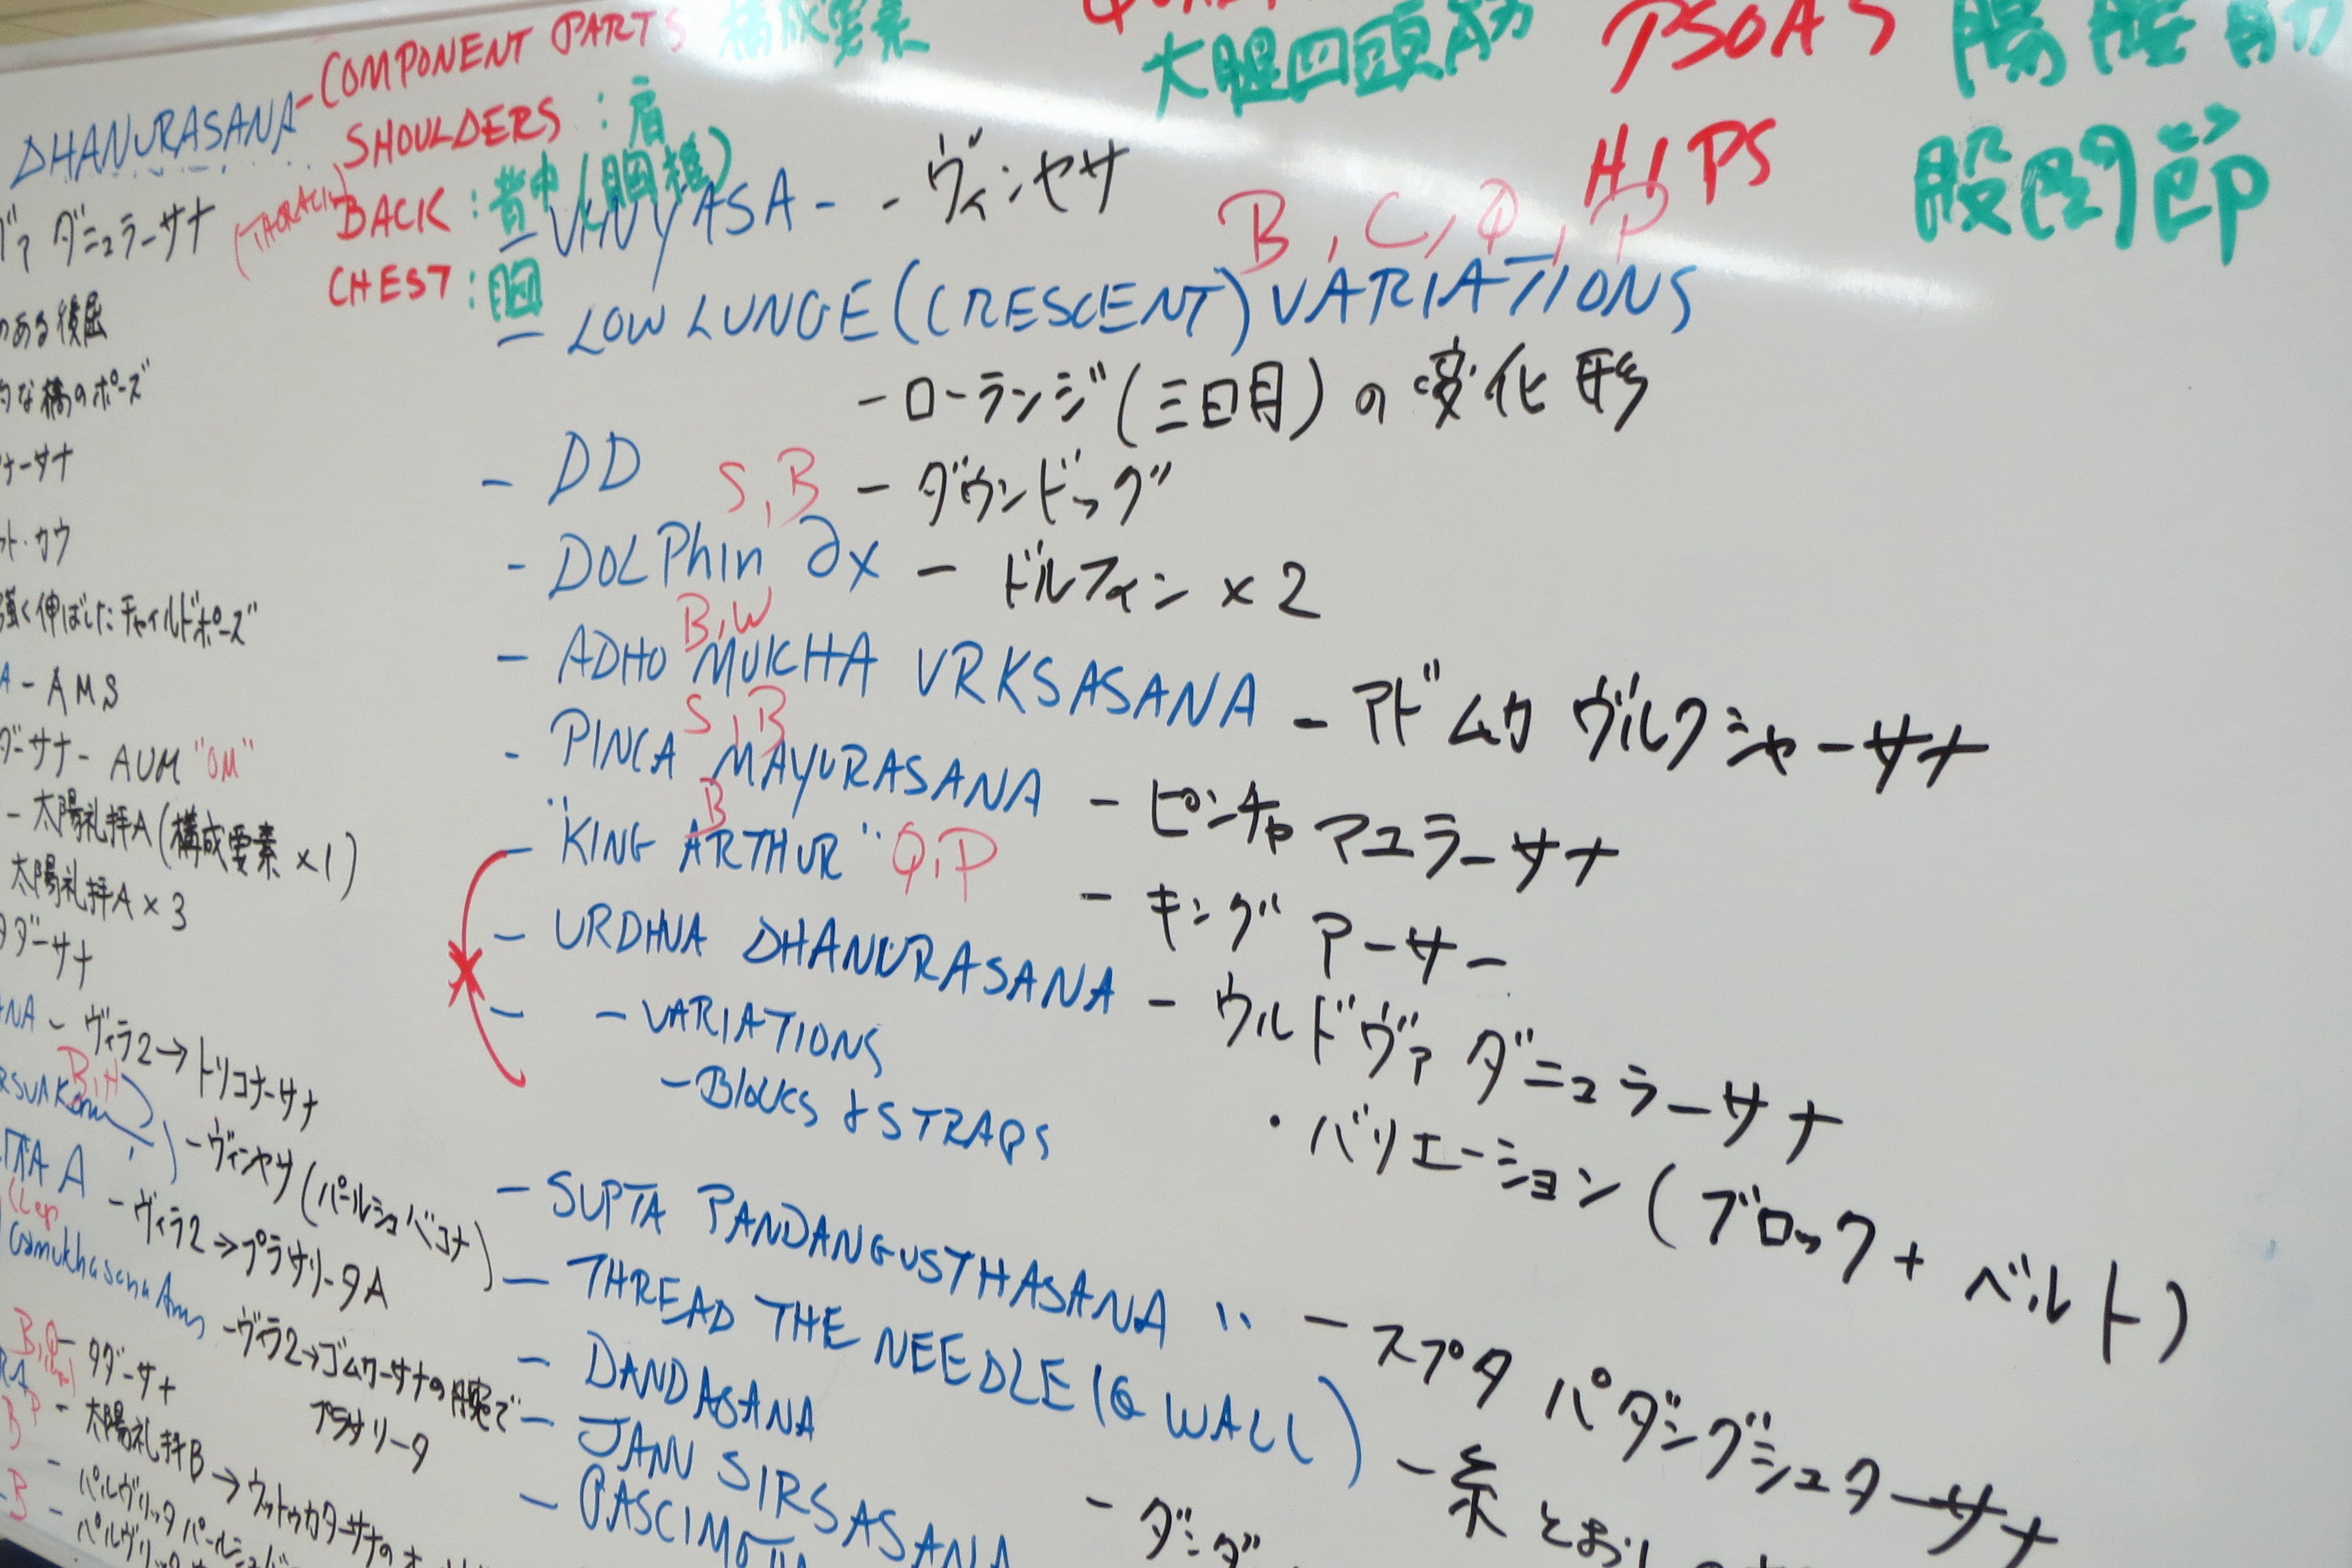 DHANURASANA - COMPONENT PARTS 構成要素
SHOULDERS : 肩
(THORACIC) BACK : 背中 (胸椎)
CHEST : 胸
大腿四頭筋
PSOAS 腸腰筋
HIPS 股関節
ダニュラーサナ
のある後屈
的な橋のポーズ
ーサナ
ト・カウ
強く伸ばしたチャイルドポーズ
A - AMS
ダーサナ - AUM "OM"
- 太陽礼拝A (構成要素 ×1)
太陽礼拝A × 3
タダーサナ
ANA - ヴィラ2→トリコナーサナ
B,H
- ヴィンヤサ (パールシュバコナ)
A - ヴィラ2→プラサリータA
Gomukhasana Arms - ヴィラ2→ゴムカーサナの腕で
プラサリータ
- タダーサナ
- 太陽礼拝B → ウットゥカターサナの
- パルヴリッタ パールシュ
- VINYASA - - ヴィンヤサ
B, C, Q, P
- LOW LUNGE (CRESCENT) VARIATIONS
- ローランジ (三日月) の変化形
- DD S,B - ダウンドッグ
- DOLPhin 2x - ドルフィン × 2
B,W
- ADHO MUKHA VRKSASANA - アドムカ ヴルクシャーサナ
S,B
- PINCA MAYURASANA - ピンチャ マユラーサナ
B
- "KING ARTHUR" Q,P - キング アーサー
- URDHVA DHANURASANA - ウルドヴァ ダニュラーサナ
- - VARIATIONS
- Blocks & STRAPS
・バリエーション (ブロック + ベルト)
- SUPTA PANDANGUSTHASANA " - スプタ パダングシュターサナ
- THREAD THE NEEDLE (@ WALL) - 糸とおし
- DANDASANA - ダンダ
- JANU SIRSASANA
- PASCIMOTTA